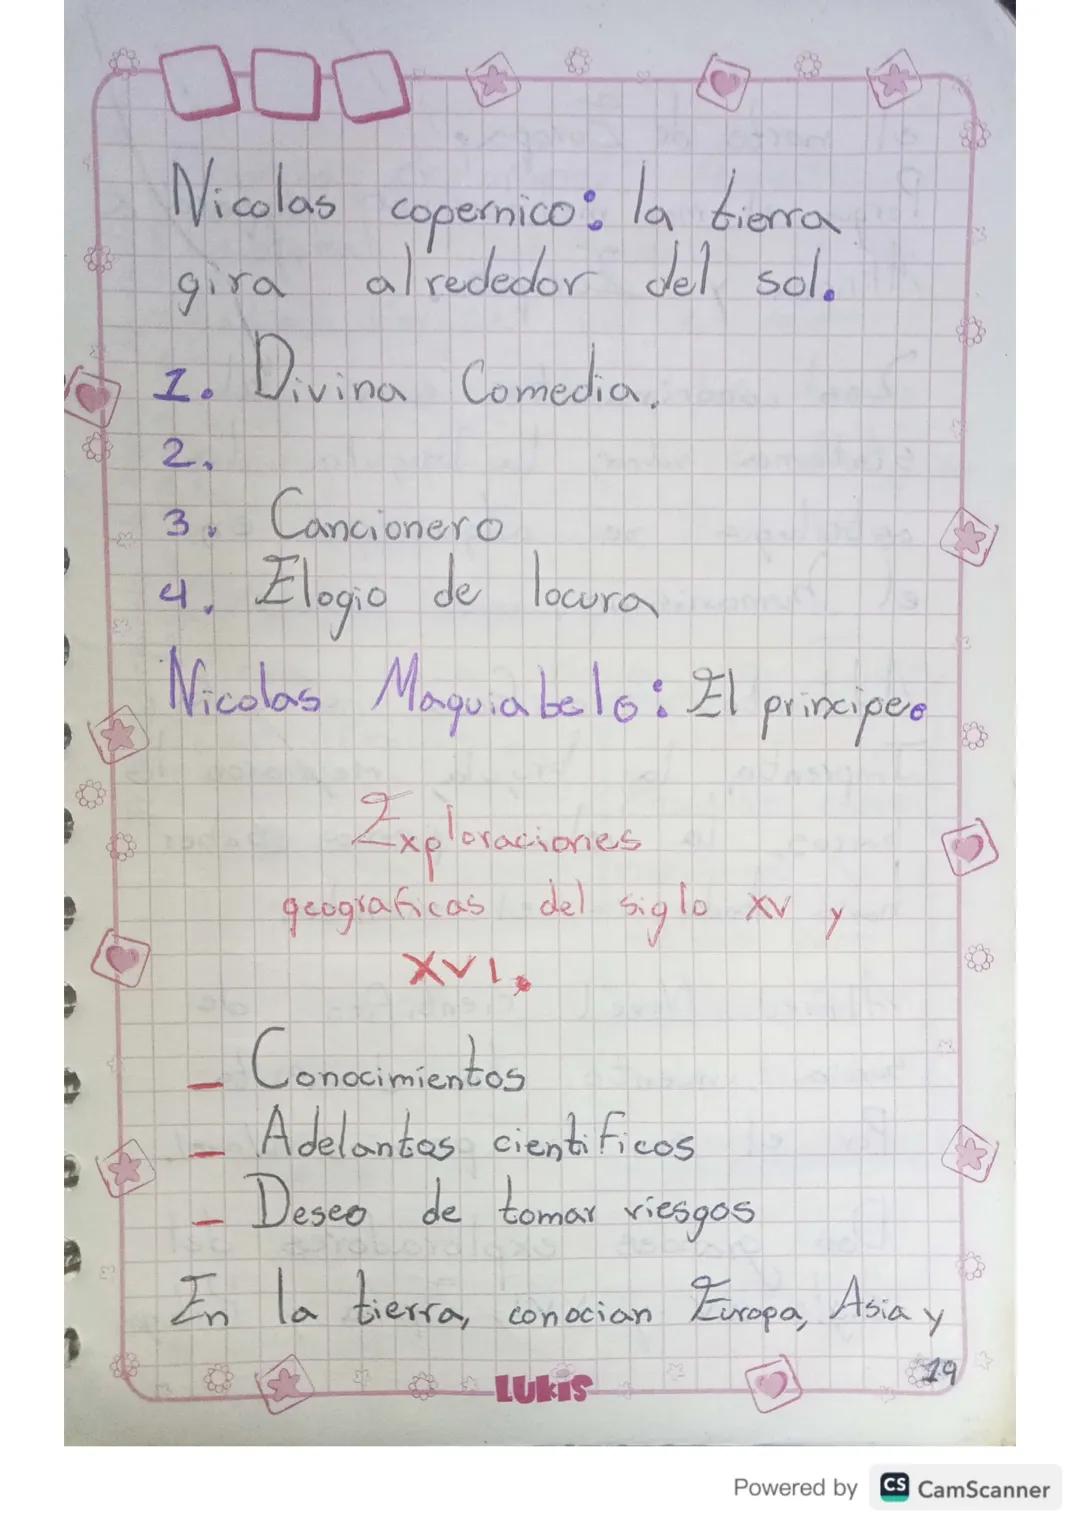 Nicolas copernico: la tierra
gira alrededor del sol.
1. Divina Comedia.
2.
3. Cancionero
4. Elogio de locura
Nicolas Maquiabelo: El principe.
Exploraciones
geograficas del siglo XV y
XVI.
- Conocimientos
- Adelantos cientificos
- Deseo de tomar riesgos
En la tierra, conocian Europa, Asia y
19
LUKIS
Powered by CS CamScanner